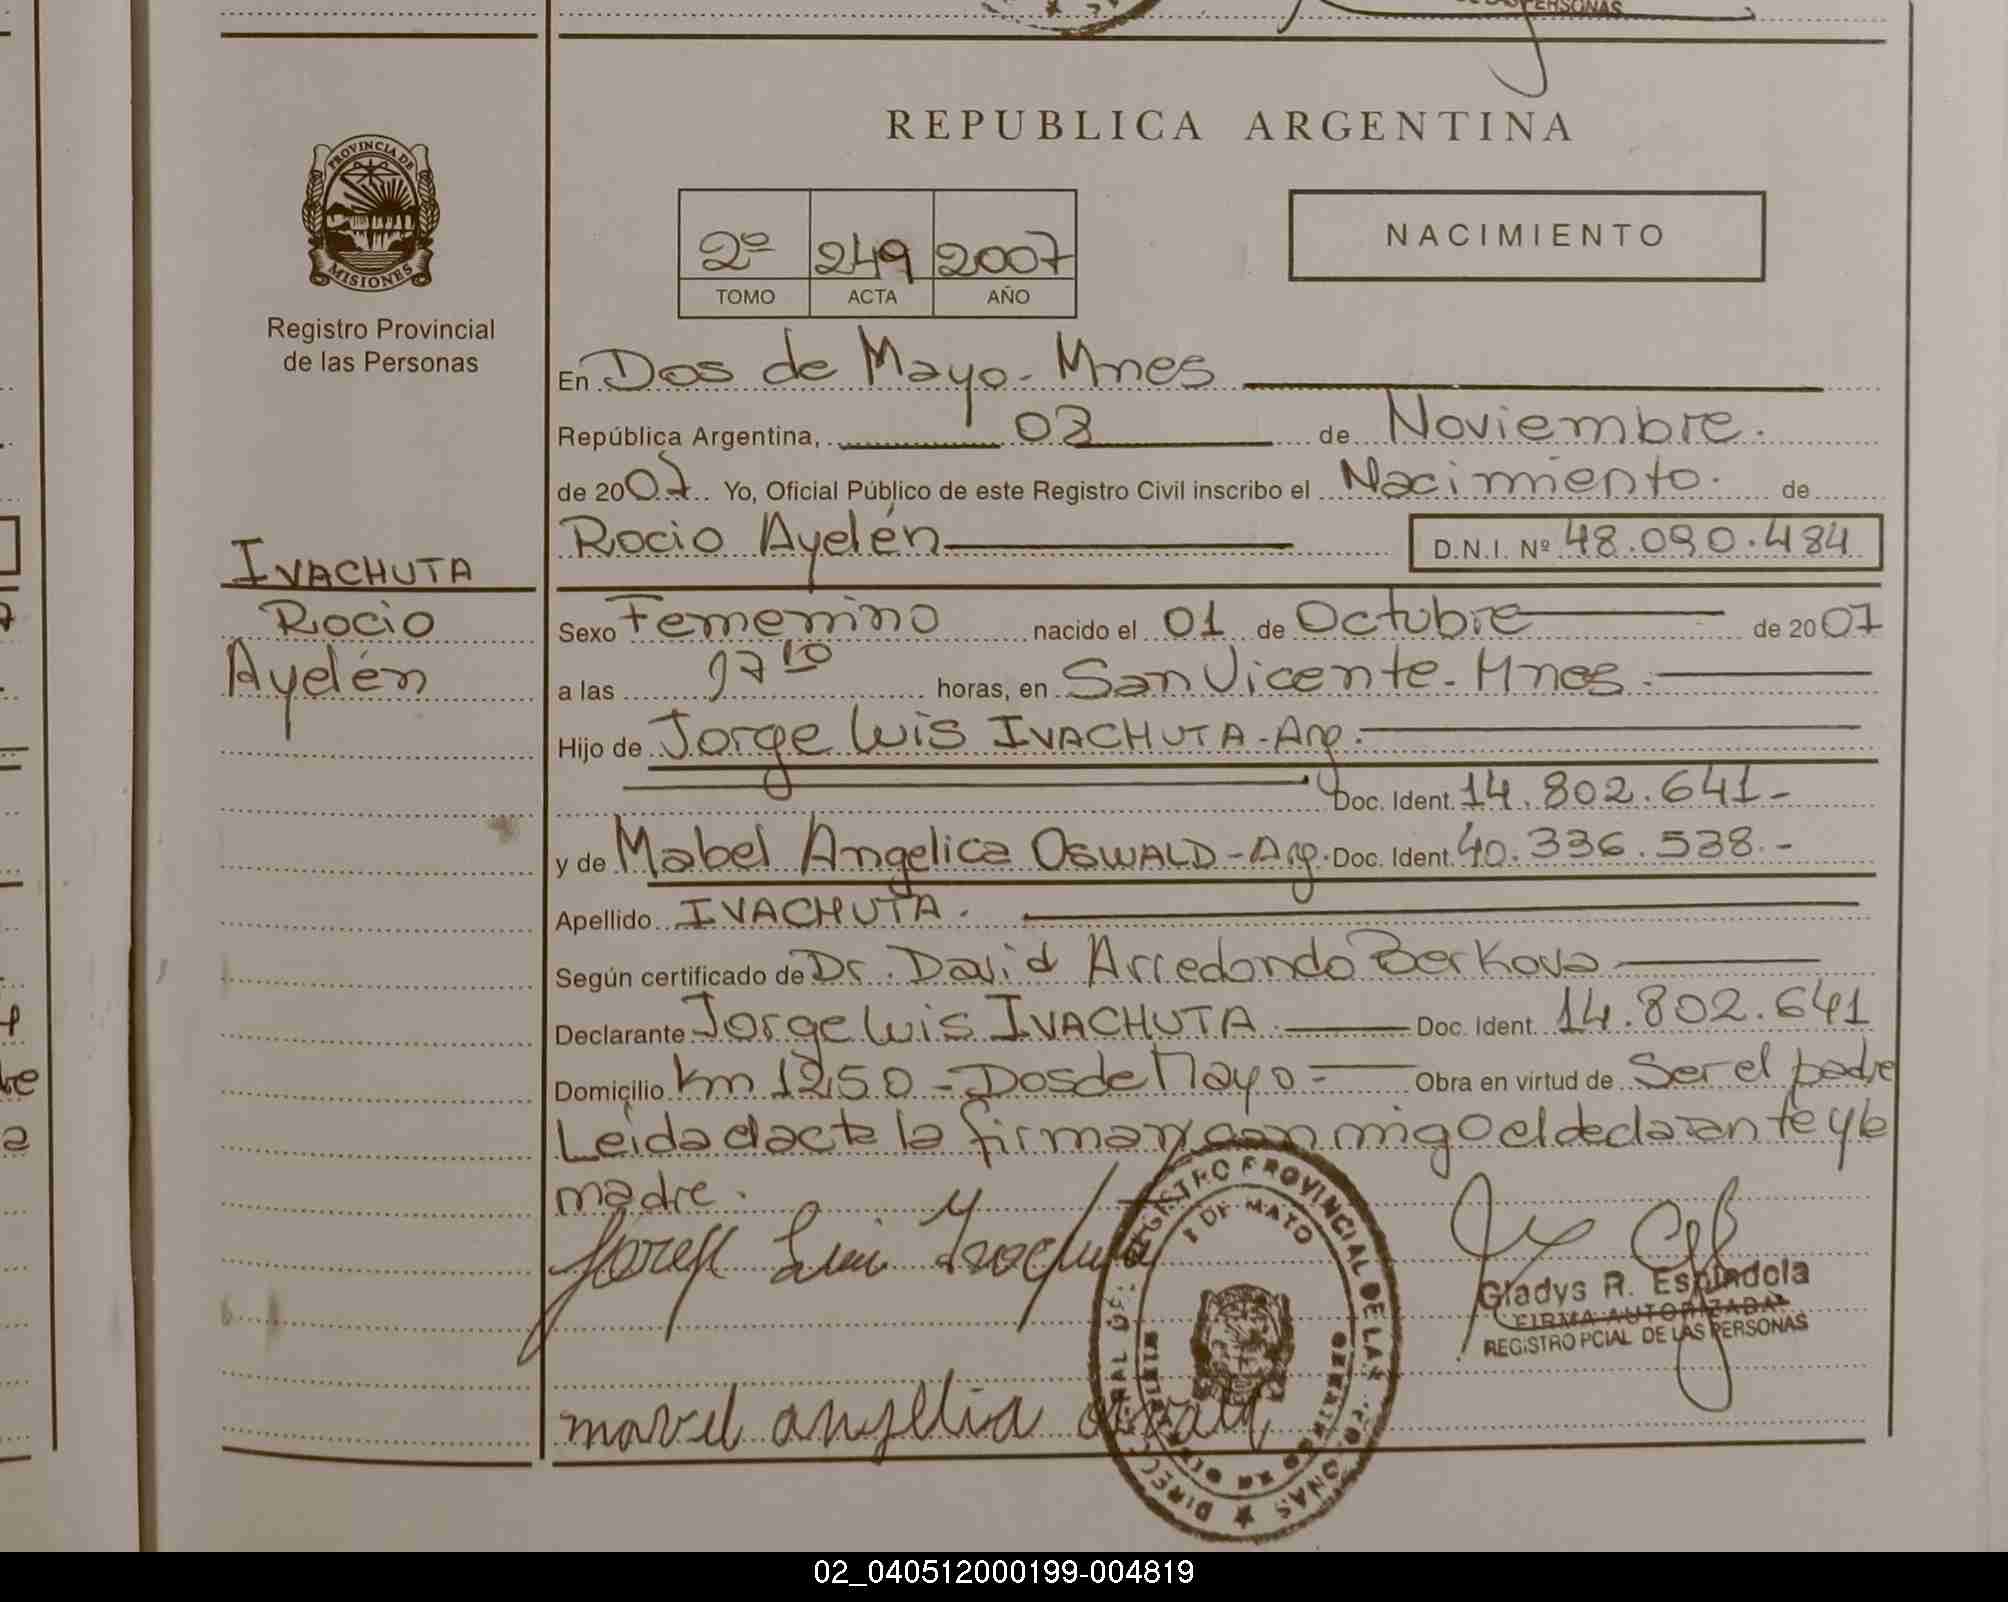 PERSONAS
REPUBLICA ARGENTINA
PROVINCIA DE
MISIONES
Registro Provincial
de las Personas
2º 249 2007
TOMO ACTA AÑO
NACIMIENTO
En Dos de Mayo - Mnes
República Argentina, 02 de Noviembre.
de 2007 Yo, Oficial Público de este Registro Civil inscribo el Nacimiento. de
Rocio Ayelén D.N.I. Nº 48.090.484
IVACHUTA
Rocio
Ayelén
Sexo Femenino nacido el 01 de Octubre de 2007
a las 17 10 horas, en San Vicente - Mnes.
Hijo de Jorge Luis IVACHUTA - Arg.
Doc. Ident. 14.802.641-
y de Mabel Angelica OSWALD - Arg. Doc. Ident. 40.336.538.-
Apellido IVACHUTA.
Según certificado de Dr. David Arredondo Berkova
Declarante Jorge Luis IVACHUTA Doc. Ident. 14.802.641
Domicilio Km 1250 - Dos de Mayo = Obra en virtud de Ser el padre
Leida el acta la firman conmigo el declarante y la
madre.
REGISTRO PROVINCIAL DE LAS PERSONAS
2 DE MAYO
Gladys R. Espindola
FIRMA AUTORIZADA
REGISTRO PCIAL DE LAS PERSONAS
02_040512000199-004819